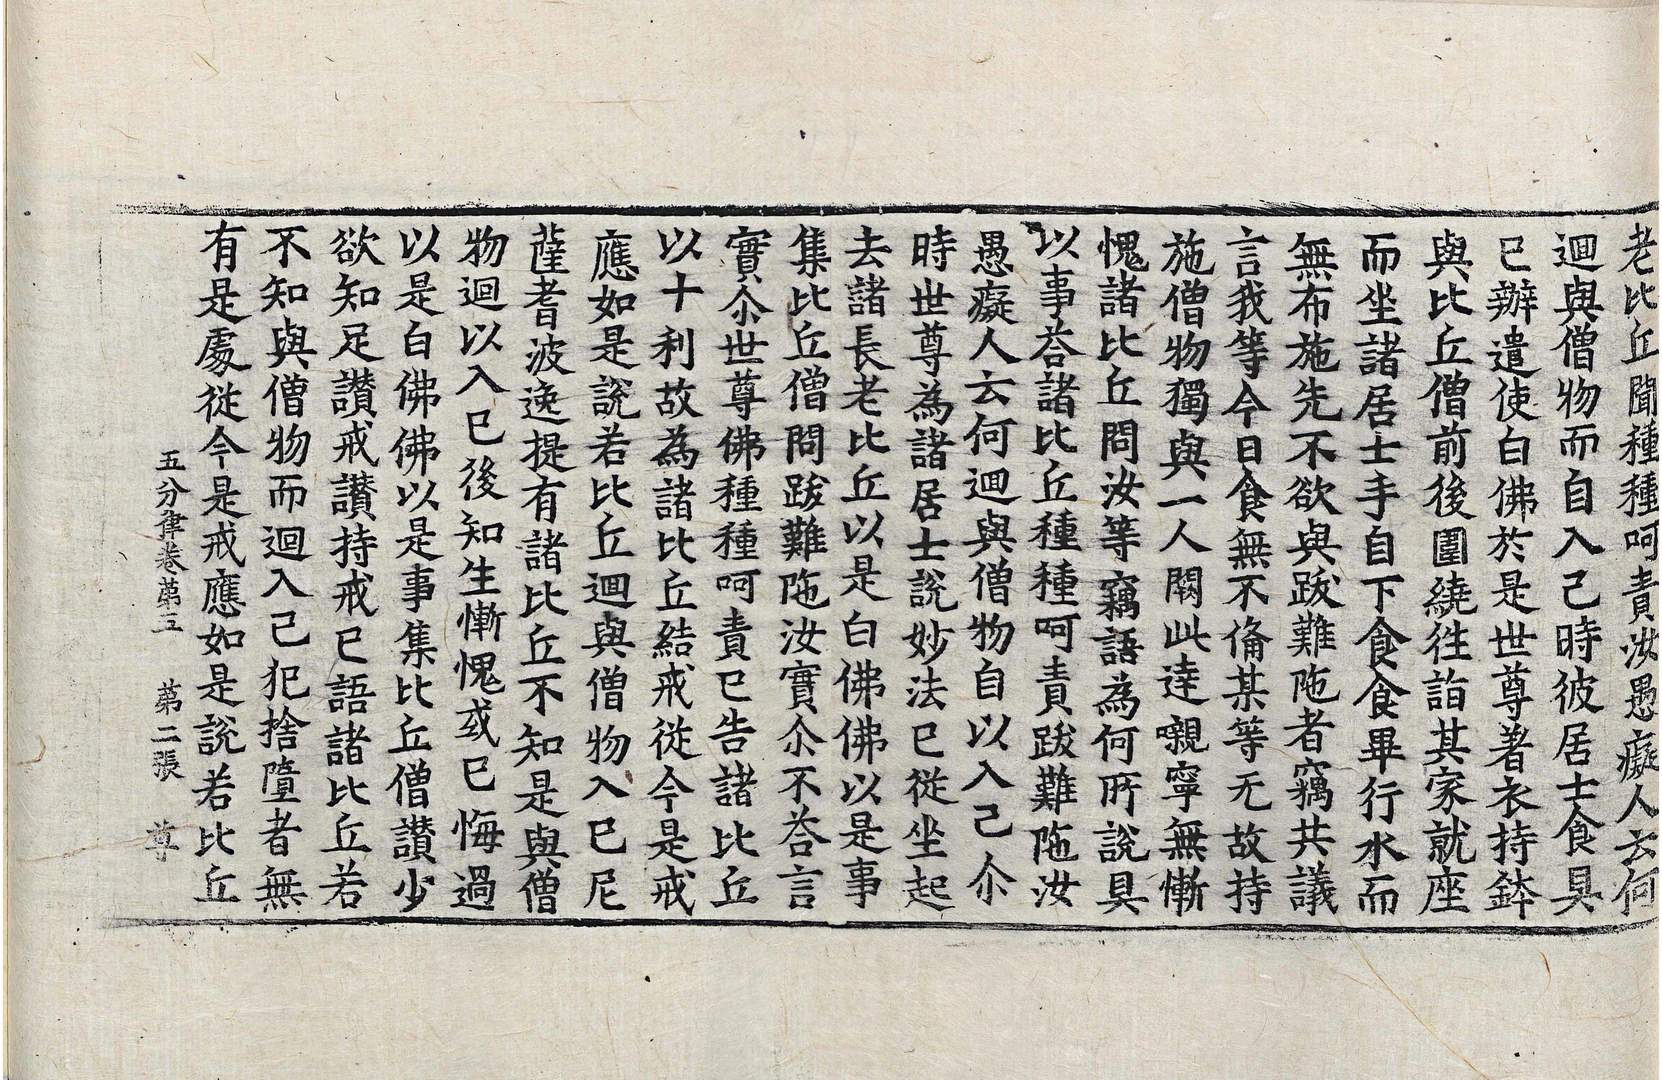 老比丘聞種種呵責汝愚癡人云何
迴與僧物而自入己時彼居士食具
已辦遣使白佛於是世尊著衣持鉢
與比丘僧前後圍繞徃詣其家就座
而坐諸居士手自下食食畢行水而
無布施先不欲與跋難陁者竊共議
言我等今日食無不俻某等无故持
施僧物獨與一人闕此達嚫寧無慚
愧諸比丘問汝等竊語為何所說具
以事荅諸比丘種種呵責跋難陁汝
愚癡人云何迴與僧物自以入己尒
時世尊為諸居士說妙法已從坐起
去諸長老比丘以是白佛佛以是事
集比丘僧問跋難陁汝實尒不荅言
實尒世尊佛種種呵責已告諸比丘
以十利故為諸比丘結戒從今是戒
應如是說若比丘迴與僧物入己尼
薩耆波逸提有諸比丘不知是與僧
物迴以入已後知生慚愧或已悔過
以是白佛佛以是事集比丘僧讃少
欲知足讃戒讃持戒已語諸比丘若
不知與僧物而迴入己犯捨墮者無
有是處從今是戒應如是說若比丘
五分律卷苐五 苐二張 尊